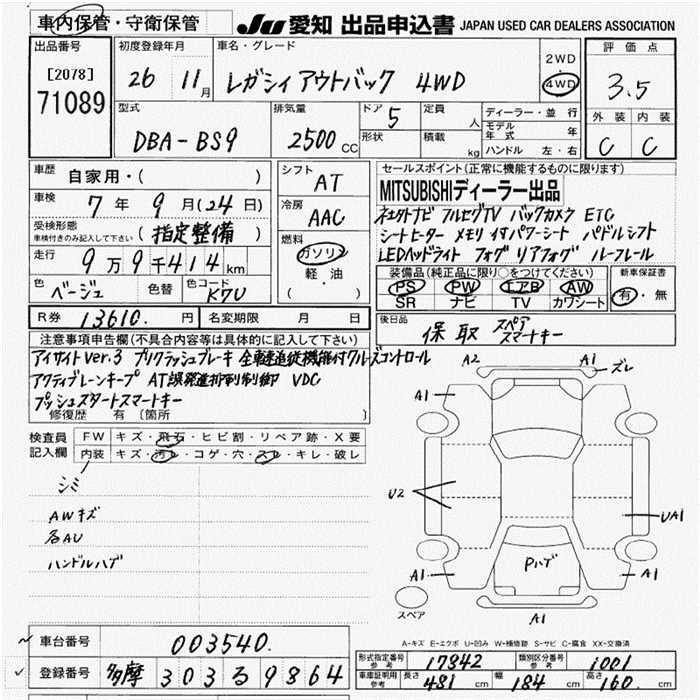 車内保管・守衛保管
JU 愛知 出品申込書 JAPAN USED CAR DEALERS ASSOCIATION
出品番号 [2078] 71089
初度登録年月 26 11月
車名・グレード レガシィ アウトバック 4WD
2WD 4WD
評価点 3.5
外装 内装 C C
型式 DBA-BS9
排気量 2500 CC
ドア 5 形状
定員 人 積載 kg
ディーラー・並行
モデル年式 年
ハンドル 左・右
車歴 自家用・( )
車検 7年 9月(24日)
受検形態 車検付きのみ記入して下さい (指定整備)
走行 9万9千414km
色 ベージュ 色替 色コード K7U
シフト AT
冷房 AAC
燃料 ガソリン 軽・油 ( )
セールスポイント(正常に機能するものに限ります)
MITSUBISHIディーラー出品
フルセグTV バックカメラ ETC
シートヒーター メモリ付パワーシート パドルシフト
LEDヘッドライト フォグ リアフォグ ルーフレール
装備品(純正品に限り○をつけてください)
PS PW エアB AW
SR ナビ TV カワシート
新車保証書 有・無
R券 13610.円 名変期限 月 日
後日品 保 取 スペア スマートキー
注意事項申告欄(不具合内容等は具体的に記入して下さい)
アイサイトver.3 プリクラッシュブレーキ 全車速追従機能付クルーズコントロール
アクティブレーンキープ AT誤発進抑制制御 VDC
プッシュスタートスマートキー
修復歴 有 〔箇所 〕
検査員記入欄
FW キズ・飛石・ヒビ割・リペア跡・X要
内装 キズ・汚レ・コゲ・穴・スレ・キレ・破レ
シミ
AWキズ
各AU
ハンドルハゲ
A2 A1 ズレ
A1
U2
UA1
A1 Pハゲ A1
スペア
A1
A-キズ E-エクボ U-凹み W-補修跡 S-サビ C-腐食 XX-交換済
車台番号 003540.
登録番号 多摩 303 る 9864
形式指定番号 参考 17842 類別区分番号 参考 1001
車庫証明用 参考 長さ 481 cm 幅 184 cm 高さ 160. cm